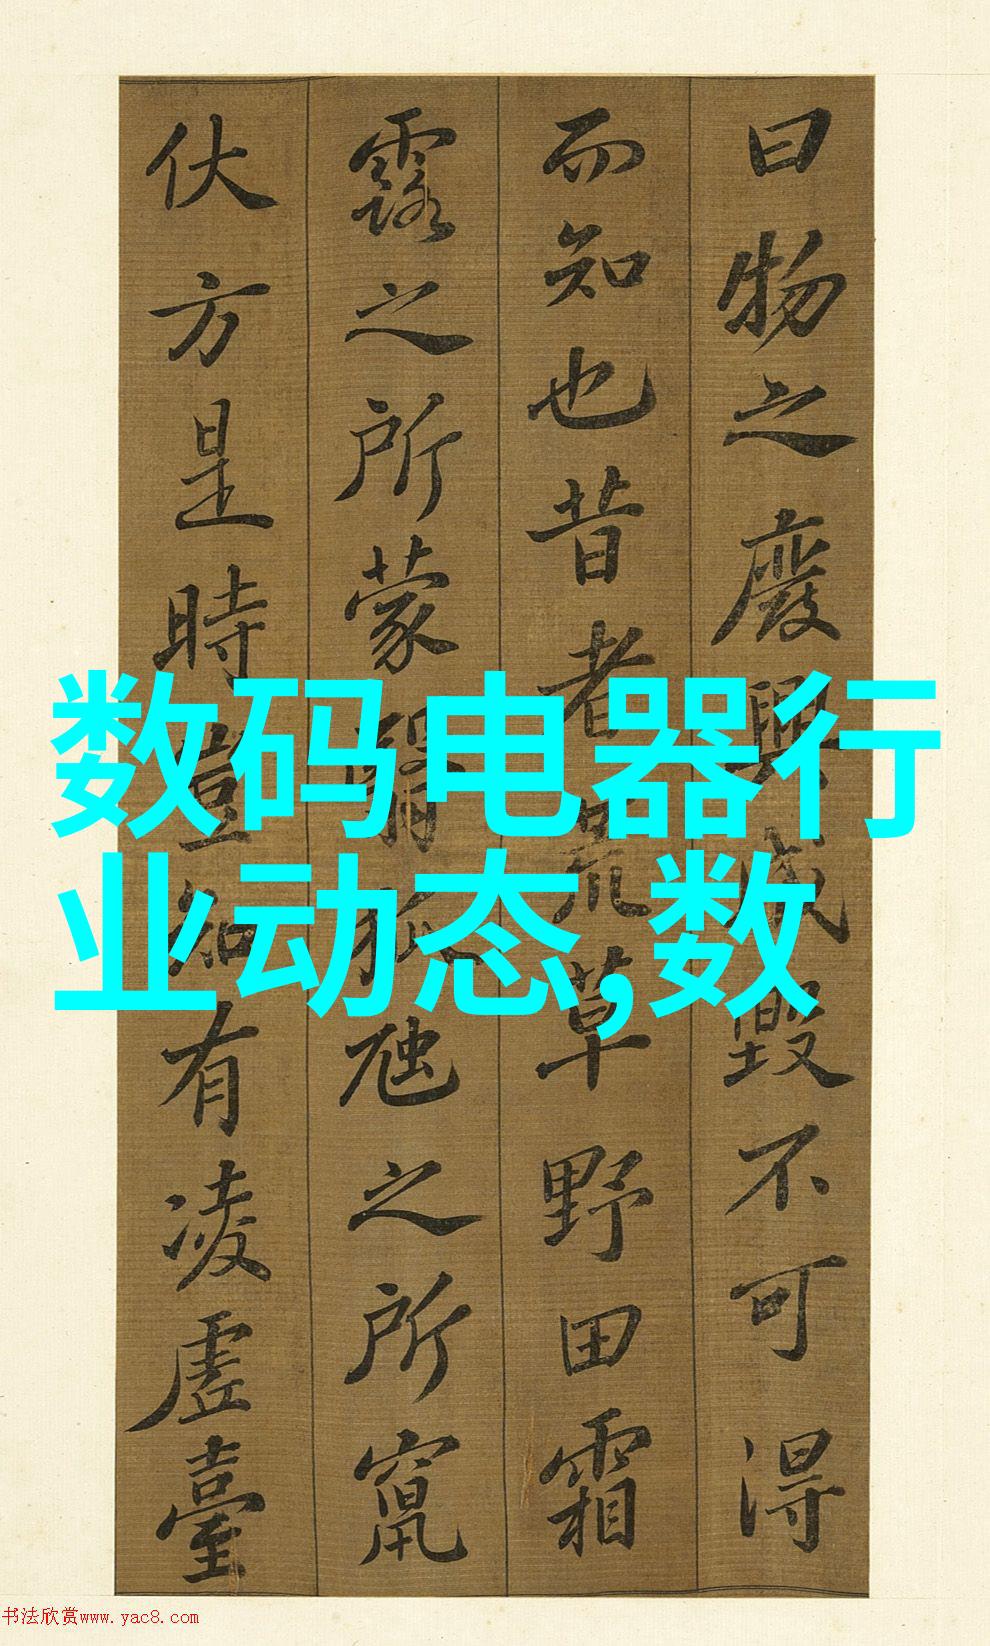 曰物之廢興成毀不可得
而知也昔者荒草野田霜
露之所蒙翳狐虺之所竄
伏方是時豈知有凌虛臺
数码电器行
业动态,数
书法欣赏www.yac8.com